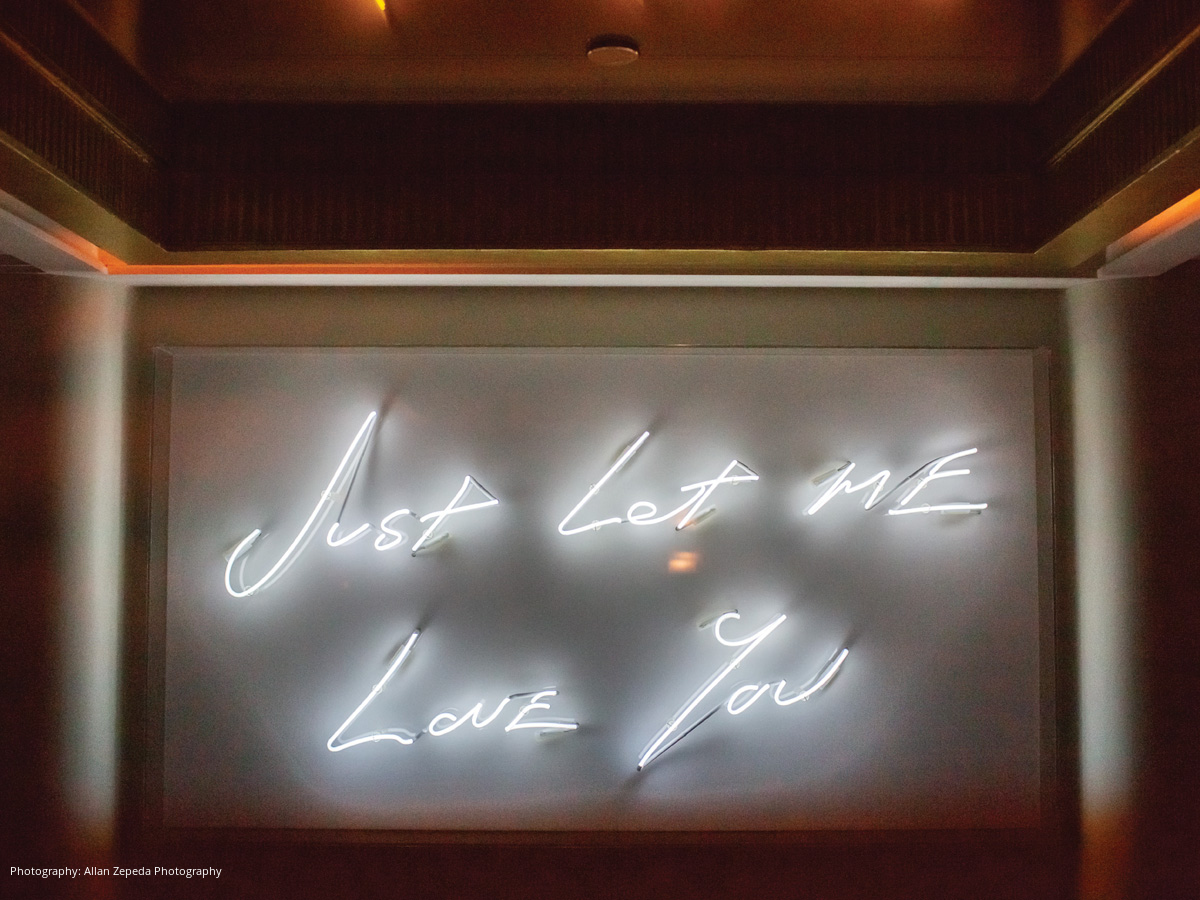 Just Let mE
LovE You
Photography: Allan Zepeda Photography